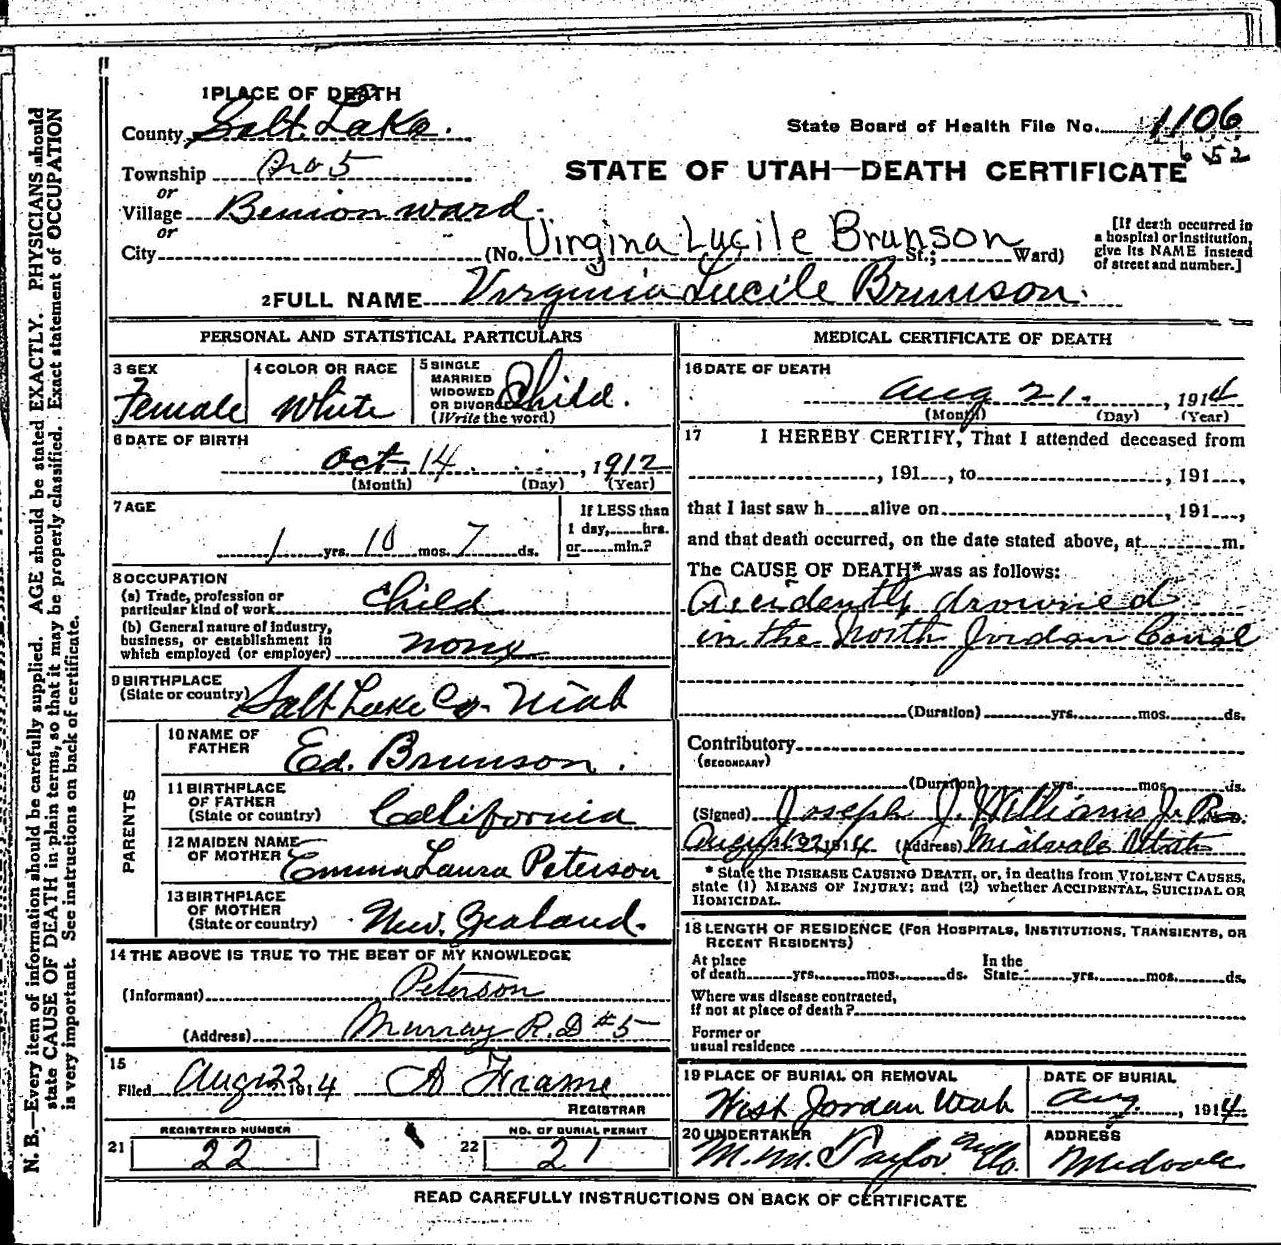 1 PLACE OF DEATH
County Salt Lake.
State Board of Health File No. 1106
652
Township No 5
STATE OF UTAH—DEATH CERTIFICATE
or
Village Bennion ward.
or
City (No. Virgina Lucile Brunson St.; Ward)
[If death occurred in a hospital or institution, give its NAME instead of street and number.]
2 FULL NAME Virginia Lucile Brunson.
PERSONAL AND STATISTICAL PARTICULARS
3 SEX
Female
4 COLOR OR RACE
White
5 SINGLE
MARRIED
WIDOWED
OR DIVORCED
(Write the word)
Child.
6 DATE OF BIRTH
Oct. 14, 1912
(Month) (Day) (Year)
7 AGE
1 yrs. 10 mos. 7 ds.
If LESS than
1 day, hrs.
or min.?
8 OCCUPATION
(a) Trade, profession or
particular kind of work Child
(b) General nature of industry,
business, or establishment in
which employed (or employer) none
9 BIRTHPLACE
(State or country) Salt Lake Co. Utah
PARENTS
10 NAME OF
FATHER Ed. Brunson.
11 BIRTHPLACE
OF FATHER
(State or country) California
12 MAIDEN NAME
OF MOTHER Emma Laura Peterson
13 BIRTHPLACE
OF MOTHER
(State or country) New Zealand.
14 THE ABOVE IS TRUE TO THE BEST OF MY KNOWLEDGE
(Informant) Peterson
(Address) Murray R.D #5
15
Filed Aug 22 1914 A Frame
REGISTRAR
21 REGISTERED NUMBER
22
22 NO. OF BURIAL PERMIT
21
MEDICAL CERTIFICATE OF DEATH
16 DATE OF DEATH
Aug 21. , 1914
(Month) (Day) (Year)
17 I HEREBY CERTIFY, That I attended deceased from
, 191 , to , 191 ,
that I last saw h alive on , 191 ,
and that death occurred, on the date stated above, at m.
The CAUSE OF DEATH* was as follows:
Accidently drowned
in the North Jordan Canal
(Duration) yrs. mos. ds.
Contributory
(SECONDARY)
(Duration) yrs. mos. ds.
(Signed) Joseph J. Williams J.P.
August 22 1914 (Address) Midvale Utah
* State the DISEASE CAUSING DEATH, or, in deaths from VIOLENT CAUSES,
state (1) MEANS OF INJURY; and (2) whether ACCIDENTAL, SUICIDAL OR
HOMICIDAL.
18 LENGTH OF RESIDENCE (FOR HOSPITALS, INSTITUTIONS, TRANSIENTS, OR
RECENT RESIDENTS)
At place
of death yrs. mos. ds.
In the
State yrs. mos. ds.
Where was disease contracted,
if not at place of death?
Former or
usual residence
19 PLACE OF BURIAL OR REMOVAL
West Jordan Utah
DATE OF BURIAL
Aug. , 1914
20 UNDERTAKER
M.M. Taylor and Co.
ADDRESS
Midvale
READ CAREFULLY INSTRUCTIONS ON BACK OF CERTIFICATE
N. B.—Every item of information should be carefully supplied. AGE should be stated EXACTLY. PHYSICIANS should
state CAUSE OF DEATH in plain terms, so that it may be properly classified. Exact statement of OCCUPATION
is very important. See instructions on back of certificate.